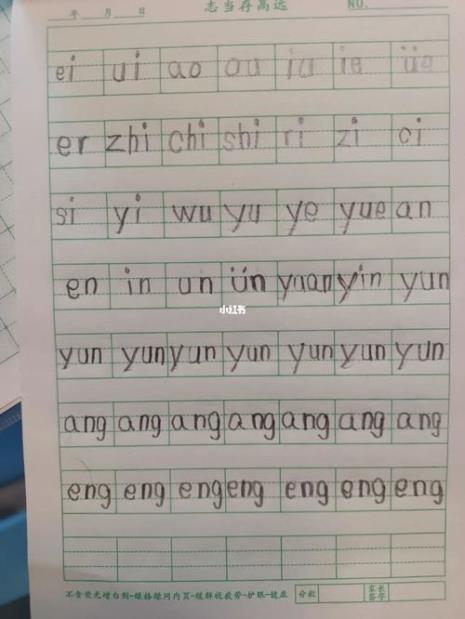 年 月 日 志当存高远 NO.
ei ui ao ou iu ie üe
er zhi chi shi ri zi ci
si yi wu yu ye yue an
en in un ün yuan yin yun
小红书
yun yun yun yun yun yun yun
ang ang ang ang ang ang ang
eng eng eng eng eng eng eng
不含荧光增白剂-绿格绿网内页-缓解视疲劳-护眼-健康 分数 家长签字